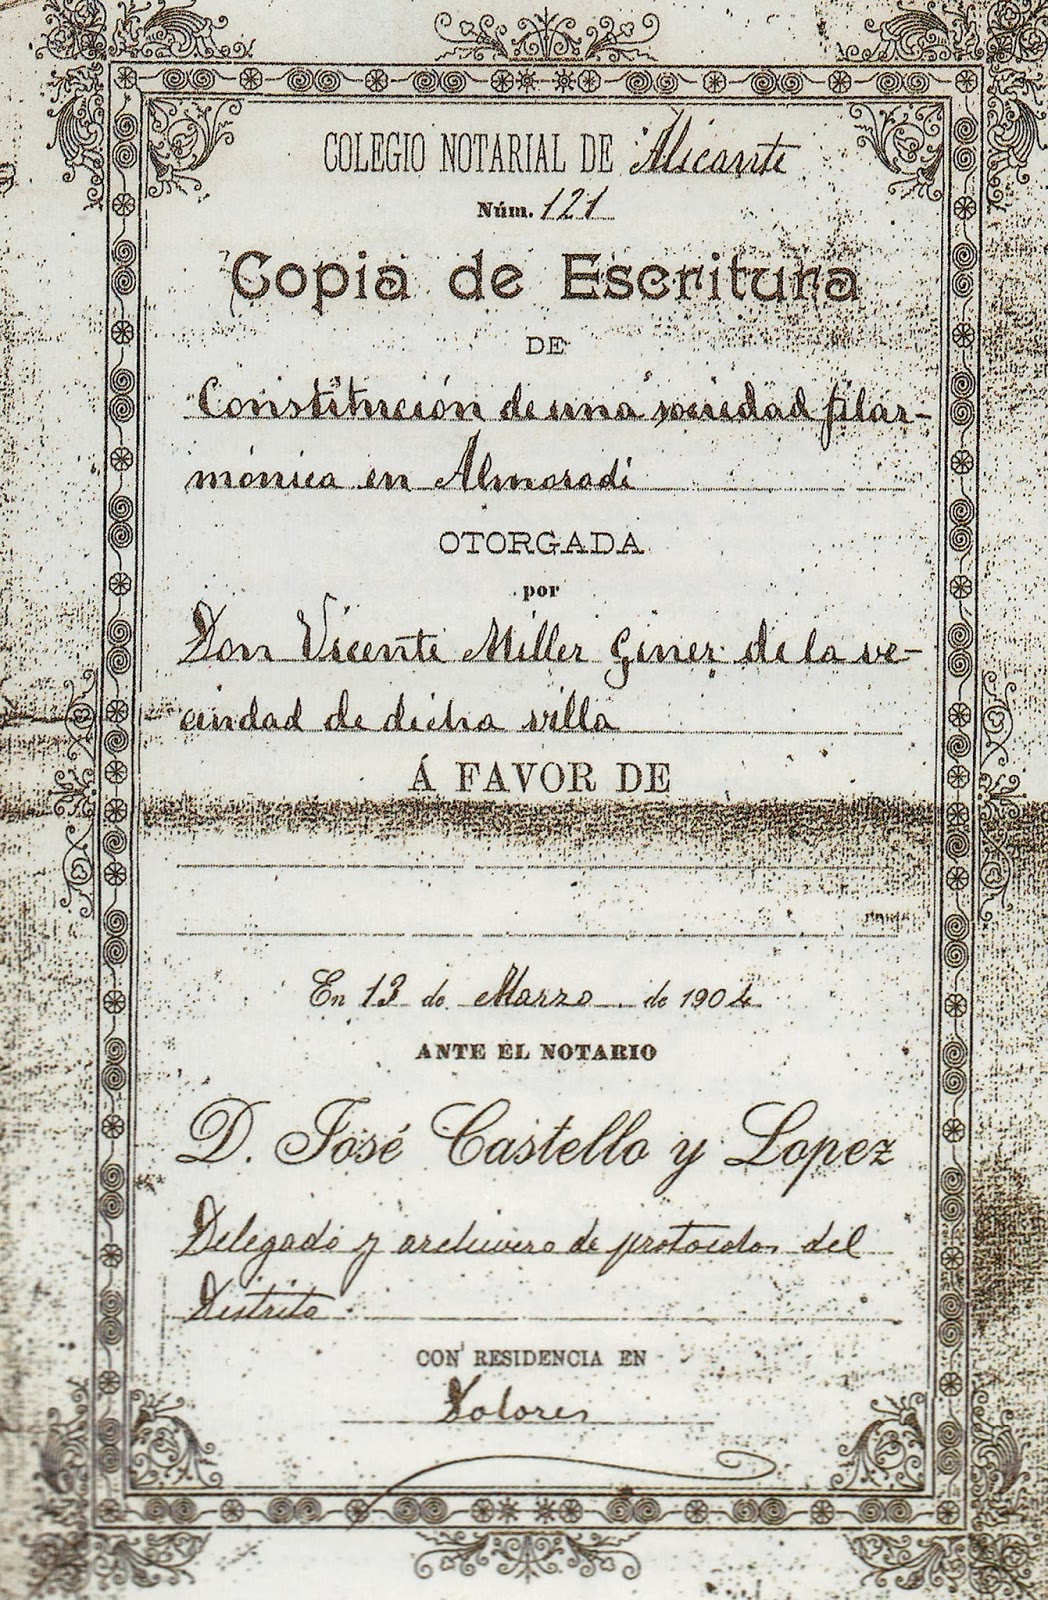 COLEGIO NOTARIAL DE Alicante
Núm. 121
Copia de Escritura
DE
Constitución de una sociedad filar-
mónica en Almoradí
OTORGADA
por
Don Vicente Miller Giner de la ve-
cindad de dicha villa
Á FAVOR DE
En 13 de Marzo de 1904
ANTE EL NOTARIO
D. José Castello y Lopez
Delegado y archivero de protocolos del
Distrito
CON RESIDENCIA EN
Dolores